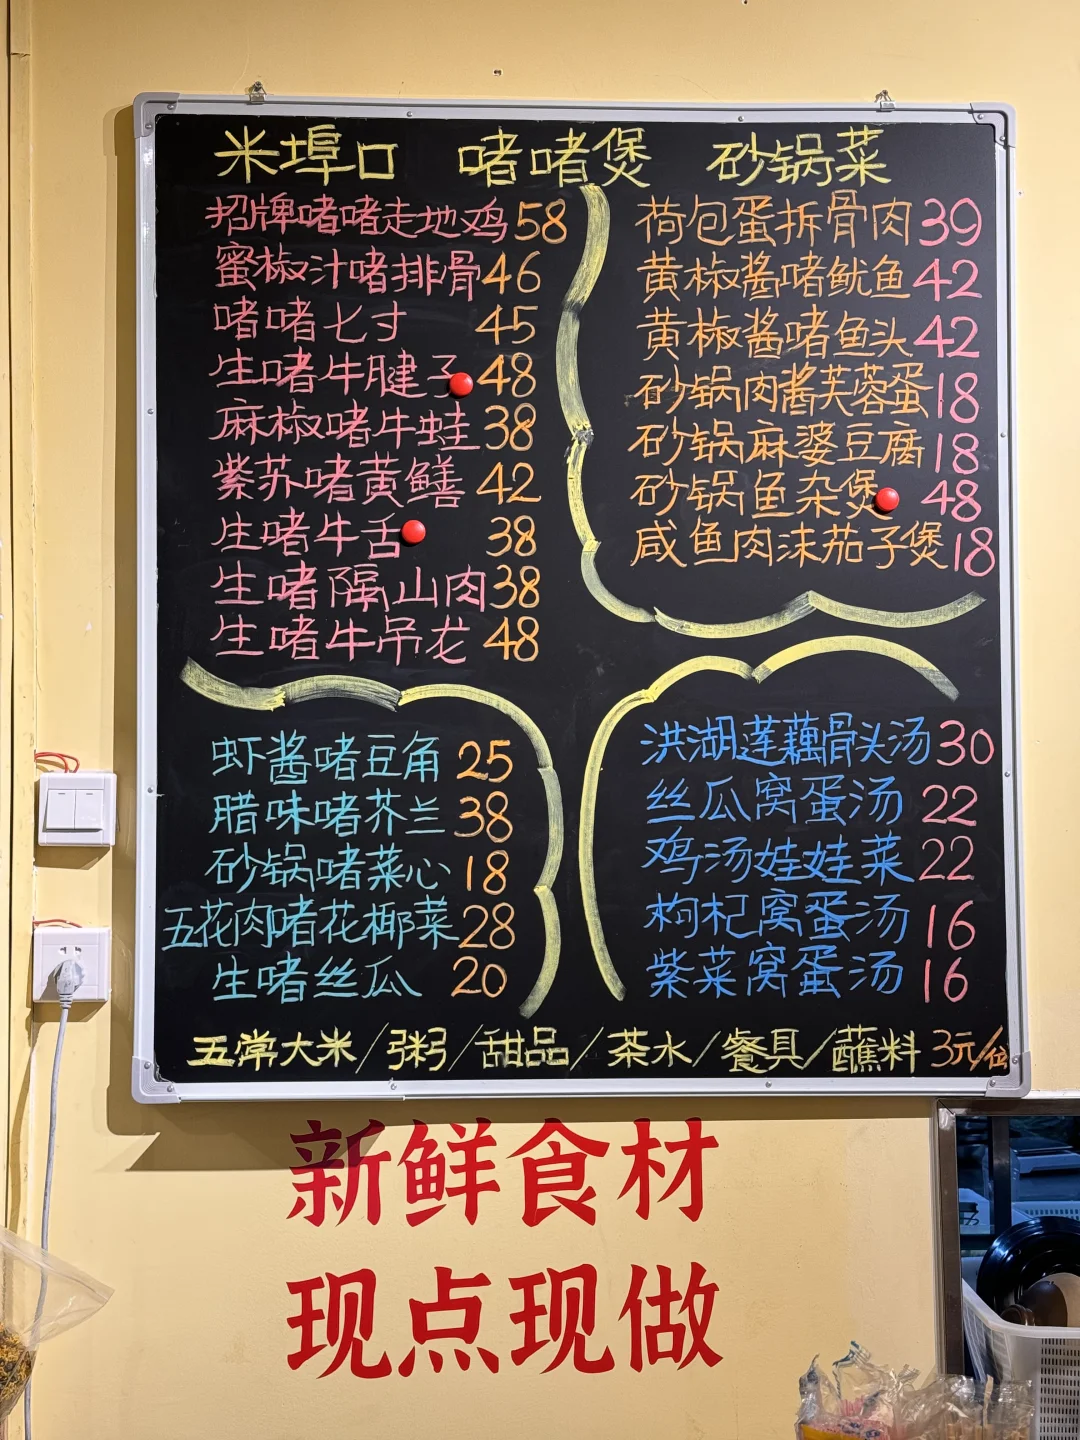 米埠口 啫啫煲 砂锅菜
招牌啫啫走地鸡 58
蜜椒汁啫排骨 46
啫啫七寸 45
生啫牛腱子 48
麻椒啫牛蛙 38
紫苏啫黄鳝 42
生啫牛舌 38
生啫隔山肉 38
生啫牛吊龙 48
荷包蛋拆骨肉 39
黄椒酱啫鱿鱼 42
黄椒酱啫鱼头 42
砂锅肉酱芙蓉蛋 18
砂锅麻婆豆腐 18
砂锅鱼杂煲 48
咸鱼肉沫茄子煲 18
虾酱啫豆角 25
腊味啫芥兰 38
砂锅啫菜心 18
五花肉啫花椰菜 28
生啫丝瓜 20
洪湖莲藕骨头汤 30
丝瓜窝蛋汤 22
鸡汤娃娃菜 22
枸杞窝蛋汤 16
紫菜窝蛋汤 16
五常大米/粥/甜品/茶水/餐具/蘸料 3元/位
新鲜食材
现点现做